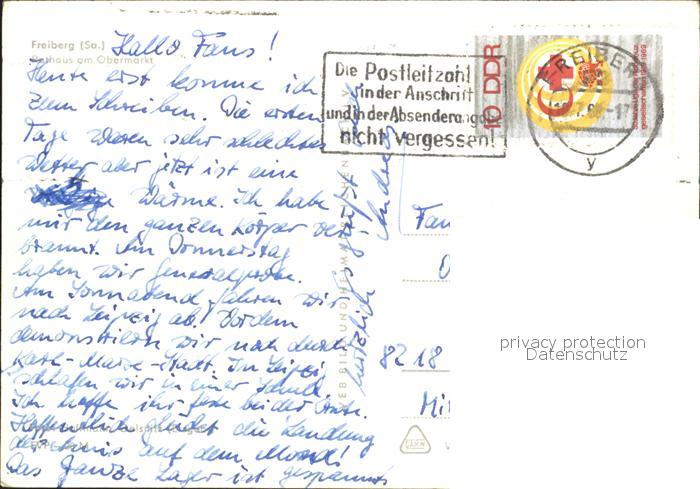 Freiberg (Sa.)
Rathaus am Obermarkt
Hallo Fans!
Heute erst komme ich
zum Schreiben. Die ersten
Tage waren sehr schlechtes
Wetter aber jetzt ist eine
Wärme. Ich habe
mir den ganzen Körper ver
brannt. Am Donnerstag
haben wir Generalprobe.
Am Sonnabend fahren wir
nach Leipzig ab. Vordem
demonstrieren wir noch durch
Karl-Marx-Stadt. In Leipzig
schlafen wir in einer Schule.
Ich hoffe ihr seid bei der
Hoffentlich die Landung
auf dem Mond!
Das ganze Lager ist gespannt
herzlich grüßt
Andreas
VEB BILD UND HEIMAT REICHENBACH
Die Postleitzahl
in der Anschrift
und in der Absenderangabe
nicht vergessen!
10 DDR
FREIBERG
y
Fam
8218
privacy protection
Datenschutz